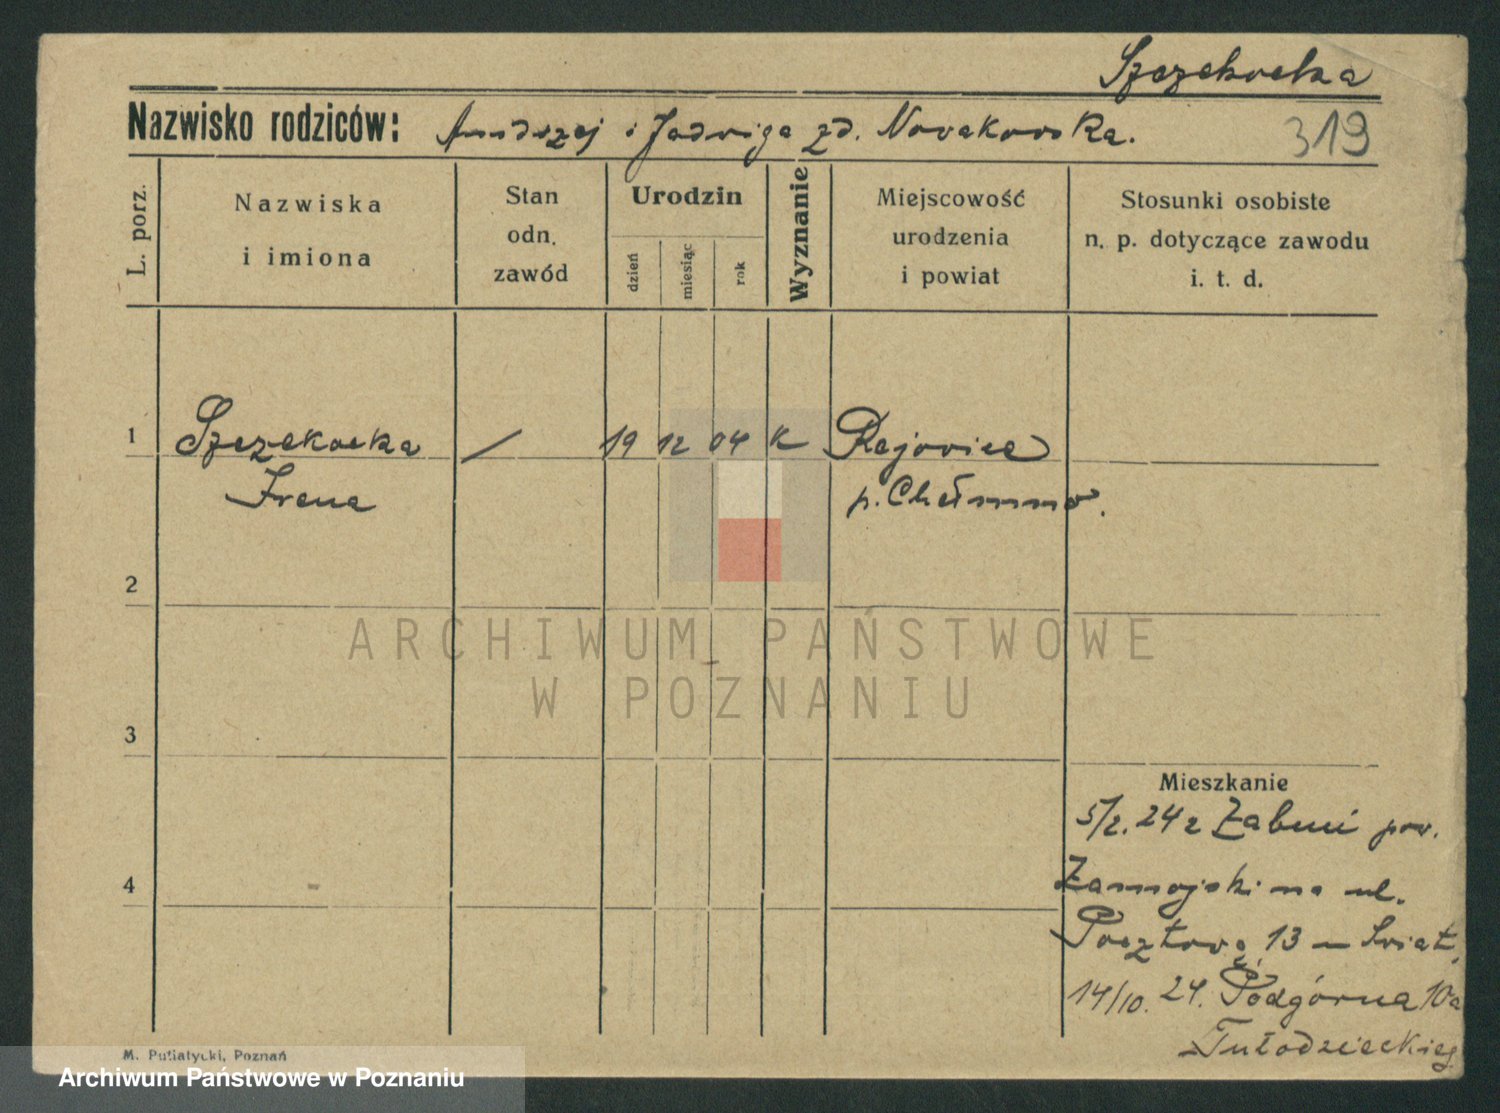 Szczekocka
Nazwisko rodziców: Andrzej i Jadwiga zd. Nowakowska.
319
L. porz.
Nazwiska
i imiona
Stan
odn.
zawód
Urodzin
dzień
miesiąc
rok
Wyznanie
Miejscowość
urodzenia
i powiat
Stosunki osobiste
n. p. dotyczące zawodu
i. t. d.
1 Szczekocka / 19 12 04 K Rejowiec
Irena p. Chełmno.
2
ARCHIWUM PAŃSTWOWE
W POZNANIU
3
Mieszkanie
5/2. 24 z Żabni pow.
4
Zamojski na ul.
Pocztową 13 – Świat.
14/10. 24. Podgórna 10a
Tułodzieckiej
M. Putiatycki, Poznań
Archiwum Państwowe w Poznaniu